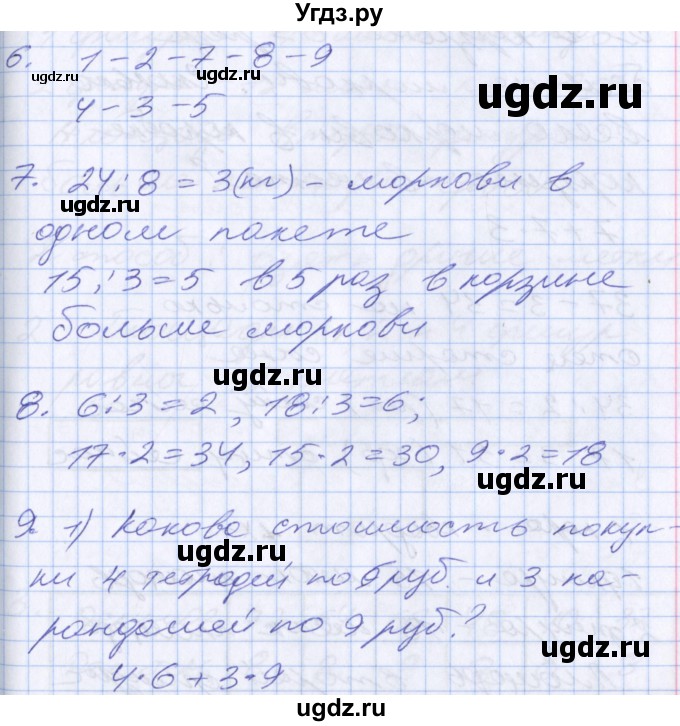 Угдз.ру
6. 1 - 2 - 7 - 8 - 9
ugdz.ru
ugdz.ru
4 - 3 - 5
7. 24 : 8 = 3 (кг) - моркови в
ugdz.ru
одном пакете
15 : 3 = 5 в 5 раз в корзине
больше моркови
ugdz.ru
8. 6 : 3 = 2, 18 : 3 = 6;
17 · 2 = 34, 15 · 2 = 30, 9 · 2 = 18
ugdz.ru
9. 1) Какова стоимость покуп-
ugdz.ru
ки 4 тетрадей по руб. и 3 ка-
рандашей по 9 руб.?
ugdz.ru
4 · 6 + 3 · 9
ugdz.ru